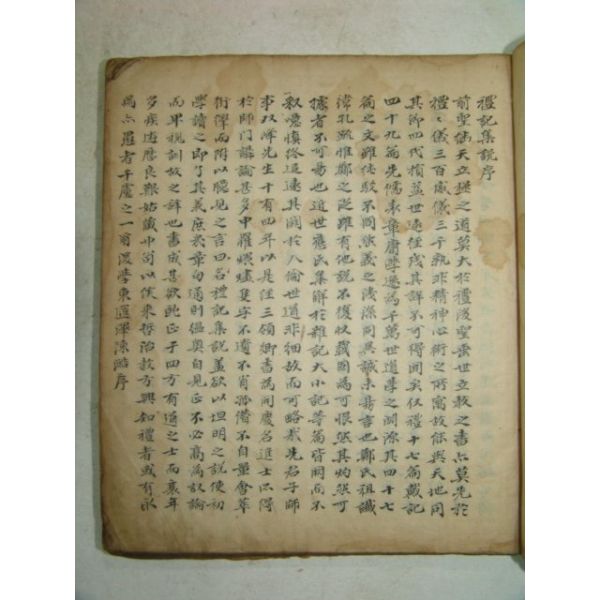 禮記集說序
前聖繼天立極之道莫大於禮後聖垂世立敎之書亦莫先於
禮禮儀三百威儀三千孰非精神心術之所寓故能與天地同
其節四代損益世遠經殘其詳不可得聞矣儀禮十七篇戴記
四十九篇先儒表章庸學遂爲千萬世道學之淵源其四十七
篇之文雖純駁不同然義之淺深同異誠未易言也鄭氏祖讖
緯孔疏惟鄭之從雖有他說不復收載固爲可恨然其灼然可
據者不可易也近世應氏集解於雜記大小記等篇皆闕而不
釋噫愼終追遠其關於人倫世道非細故而可略哉先君子師
事双峰先生十有四年以是經三領鄕書爲開慶名進士所得
於師門講論甚多中罹煨燼隻字不遺不肖孤僭不自量會萃
衍繹而附以臆見之言曰名禮記集說盖欲以坦明之說使初
學讀之即了其義庶幾章句通則縕奧自見正不必高爲議論
而卑視訓故之辭也書成甚欲就正于四方有道之士而衰年
多疾遊歷良艱姑藏巾笥以俟來哲治敎方興知禮者或有取
焉亦愚者千慮之一爾後學東匯澤陳澔序